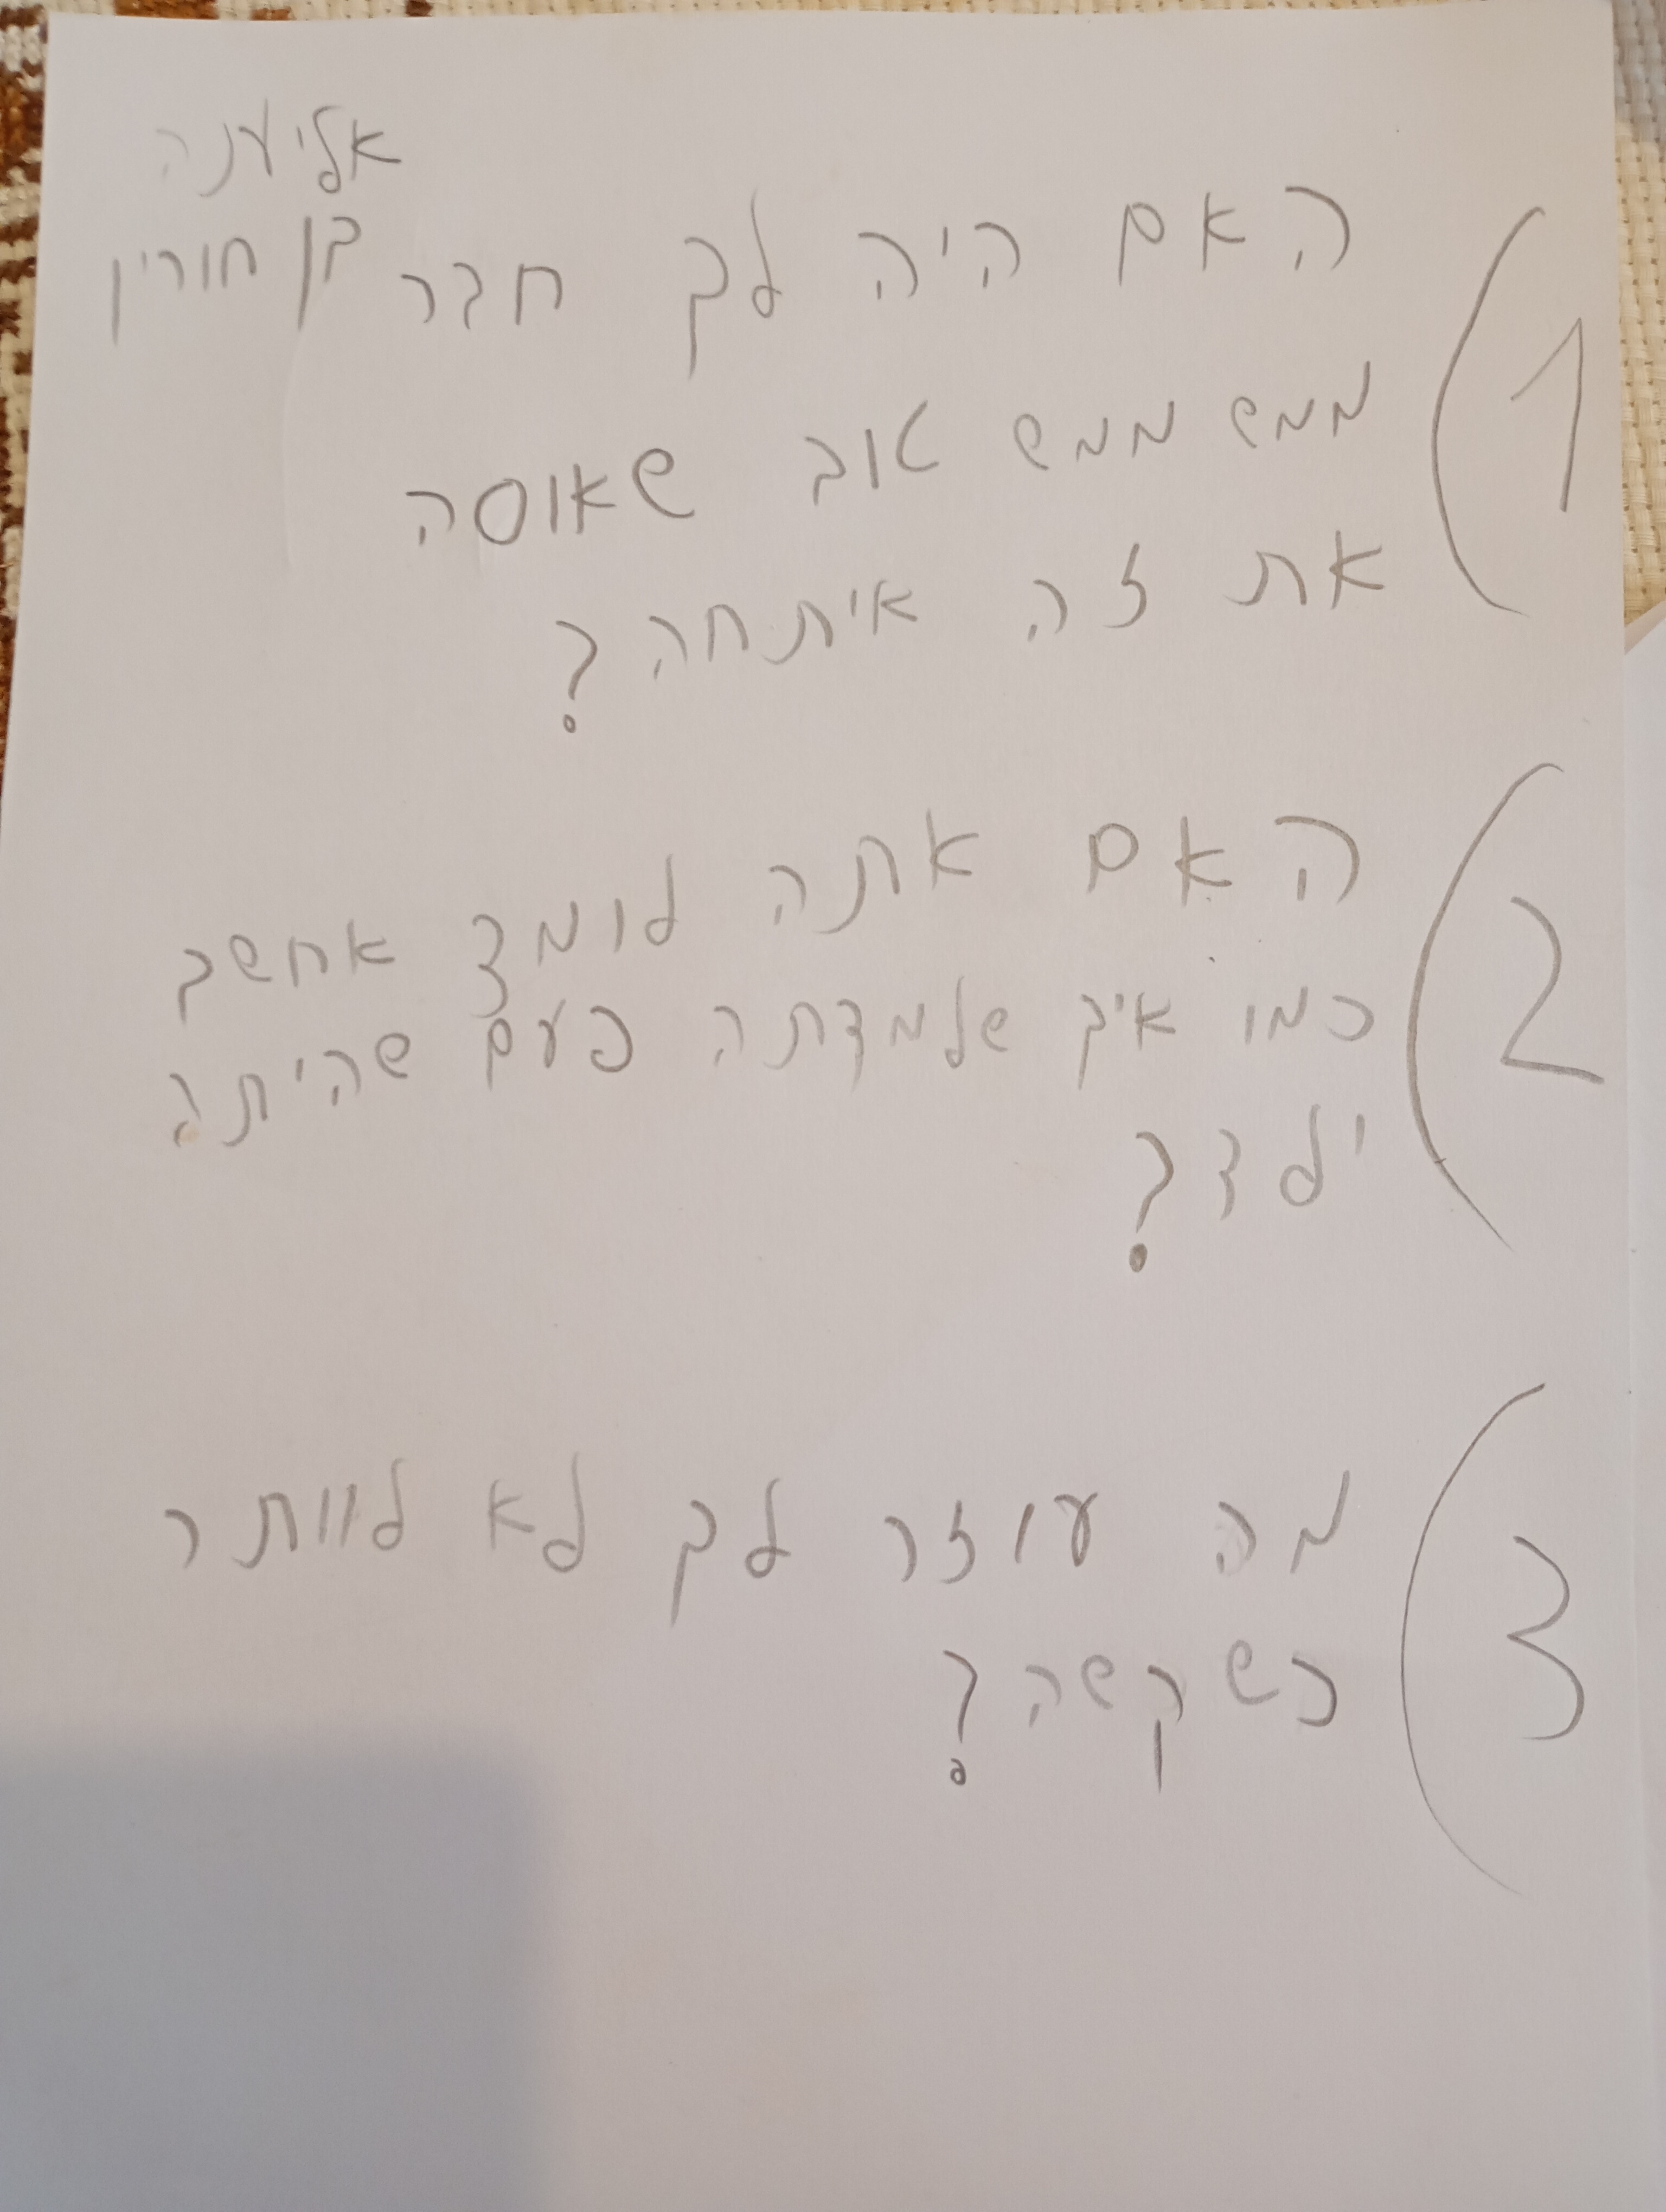 אליענה
בן חורין
1) האם היה לך חבר
ממש ממש טוב שאוסה
את זה איתחה?
2) האם אתה לומד אחשב
כמו איך שלמדתה פעם שהיתה
ילד?
3) מה עוזר לך לא לוותר
כשקשה?